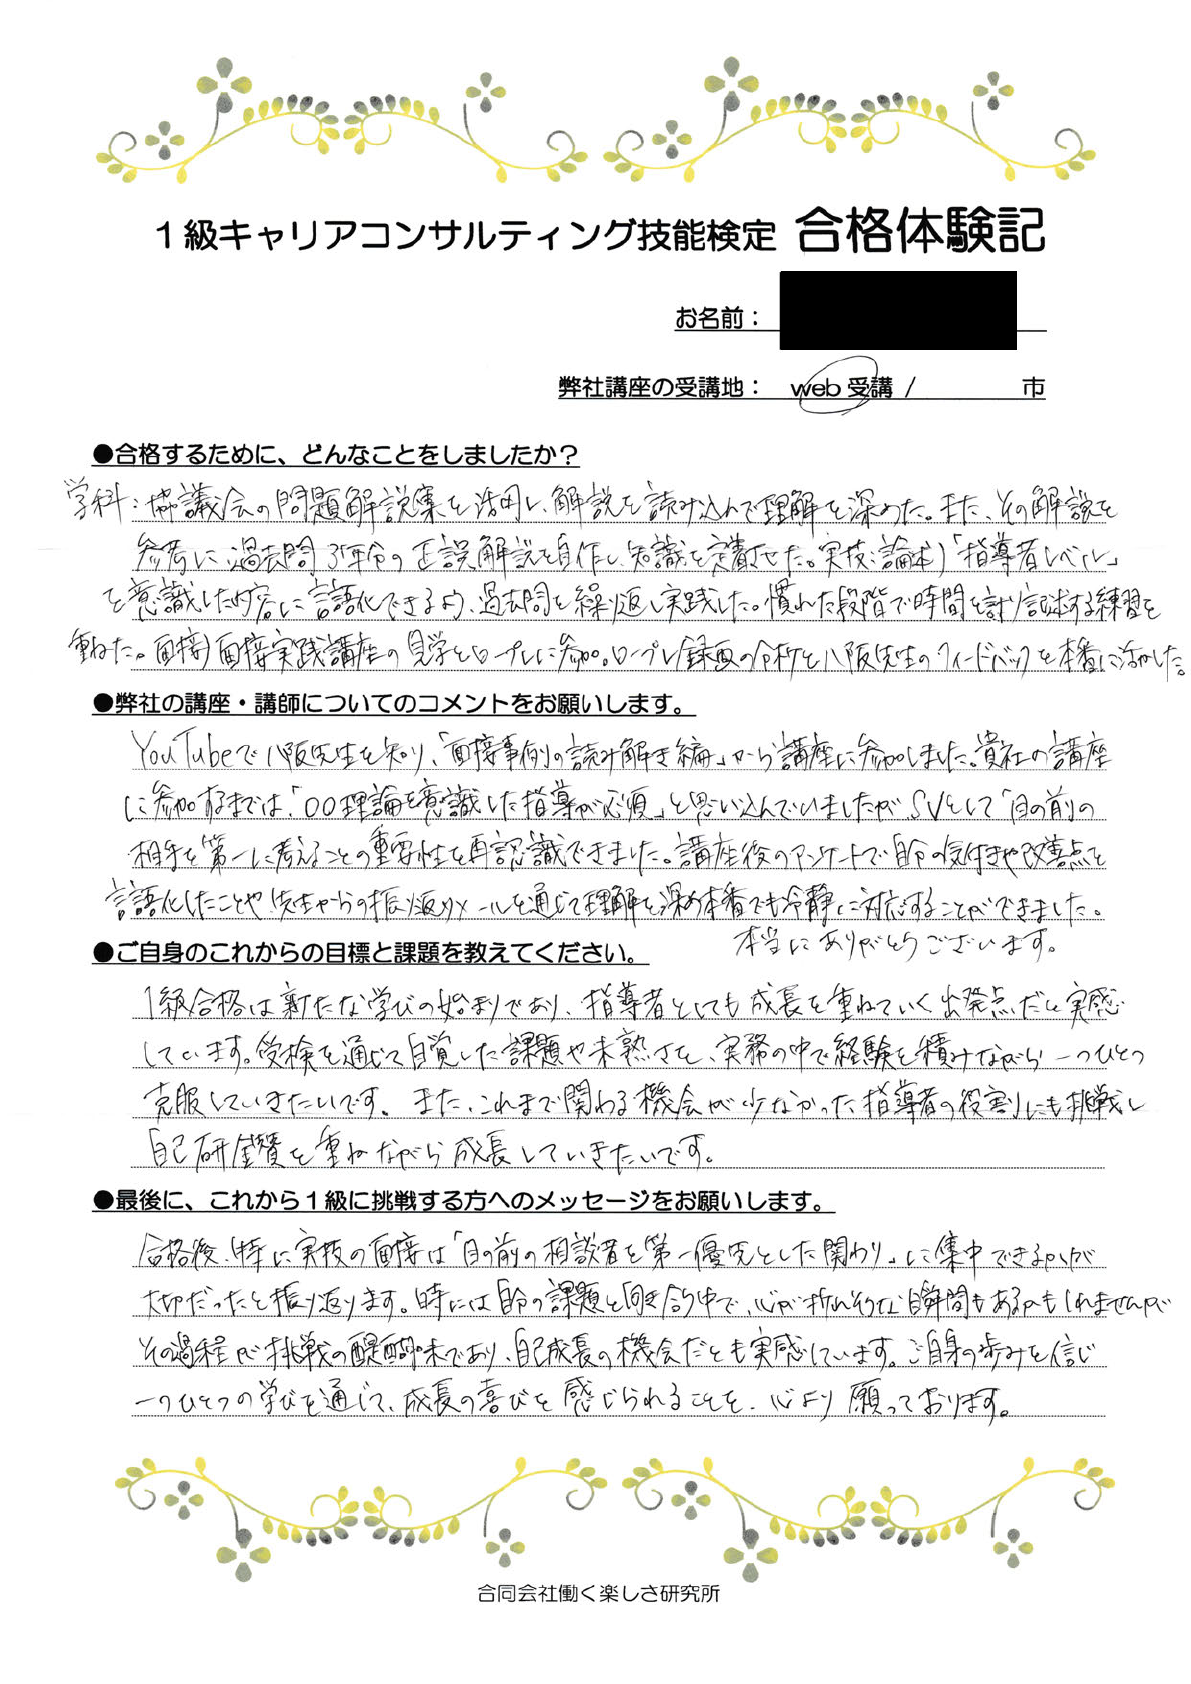 1級キャリアコンサルティング技能検定 合格体験記
お名前：
弊社講座の受講地： web 受講 / 市
●合格するために、どんなことをしましたか？
学科：協議会の問題解説集を活用し、解説を読み込んで理解を深めた。また、その解説を
参考に、過去問35年分の正誤解説を自作し、知識を定着させた。実技：論述)「指導者レベル」
を意識した内容に言語化できるよう、過去問を繰り返し実践した。慣れた段階で時間を計り記述する練習を
重ねた。面接)面接実践講座の見学とロープレに参加。ロープレ録画の分析と八阪先生のフィードバックを本番に活かした。
●弊社の講座・講師についてのコメントをお願いします。
YouTubeで八阪先生を知り、「面接事例の読み解き編」から講座に参加しました。貴社の講座
に参加するまでは、「〇〇理論を意識した指導が必須」と思い込んでいましたが、SVとして「目の前の
相手を第一に考えることの重要性を再認識できました。講座後のアンケートで自分の気付きや改善点を
言語化したことや、先生からの振り返りメールを通じて理解を深め本番でも冷静に対応することができました。
本当にありがとうございます。
●ご自身のこれからの目標と課題を教えてください。
1級合格は新たな学びの始まりであり、指導者としても成長を重ねていく出発点だと実感
しています。受検を通じて自覚した課題や未熟さを、実務の中で経験を積みながら一つひとつ
克服していきたいです。また、これまで関わる機会が少なかった指導者の役割にも挑戦し
自己研鑽を重ねながら成長していきたいです。
●最後に、これから1級に挑戦する方へのメッセージをお願いします。
合格後、特に実技の面接は「目の前の相談者を第一優先とした関わり」に集中できるかが
大切だったと振り返ります。時には自分の課題と向き合う中で、心が折れそうな瞬間もあるかもしれませんが
その過程が挑戦の醍醐味であり、自己成長の機会だとも実感しています。ご自身の歩みを信じ
一つひとつの学びを通じて、成長の喜びを感じられることを、心より願っております。
合同会社働く楽しさ研究所